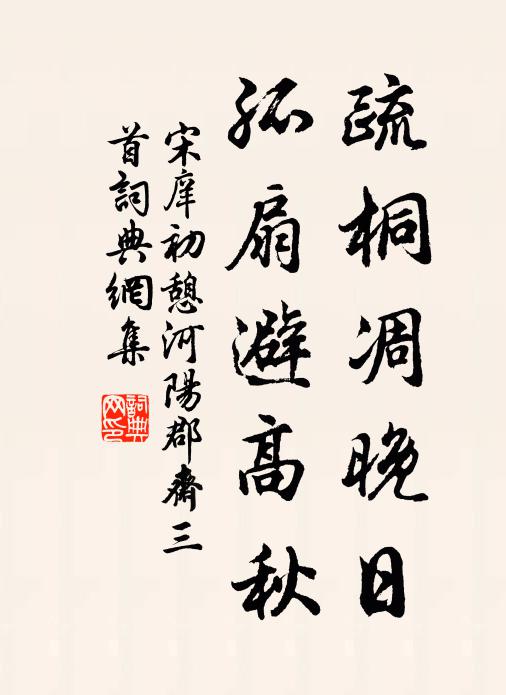 疏桐凋晚日
孤扇避高秋
宋庠初憩河陽郡齋三
首詞典網集
詞典
網印